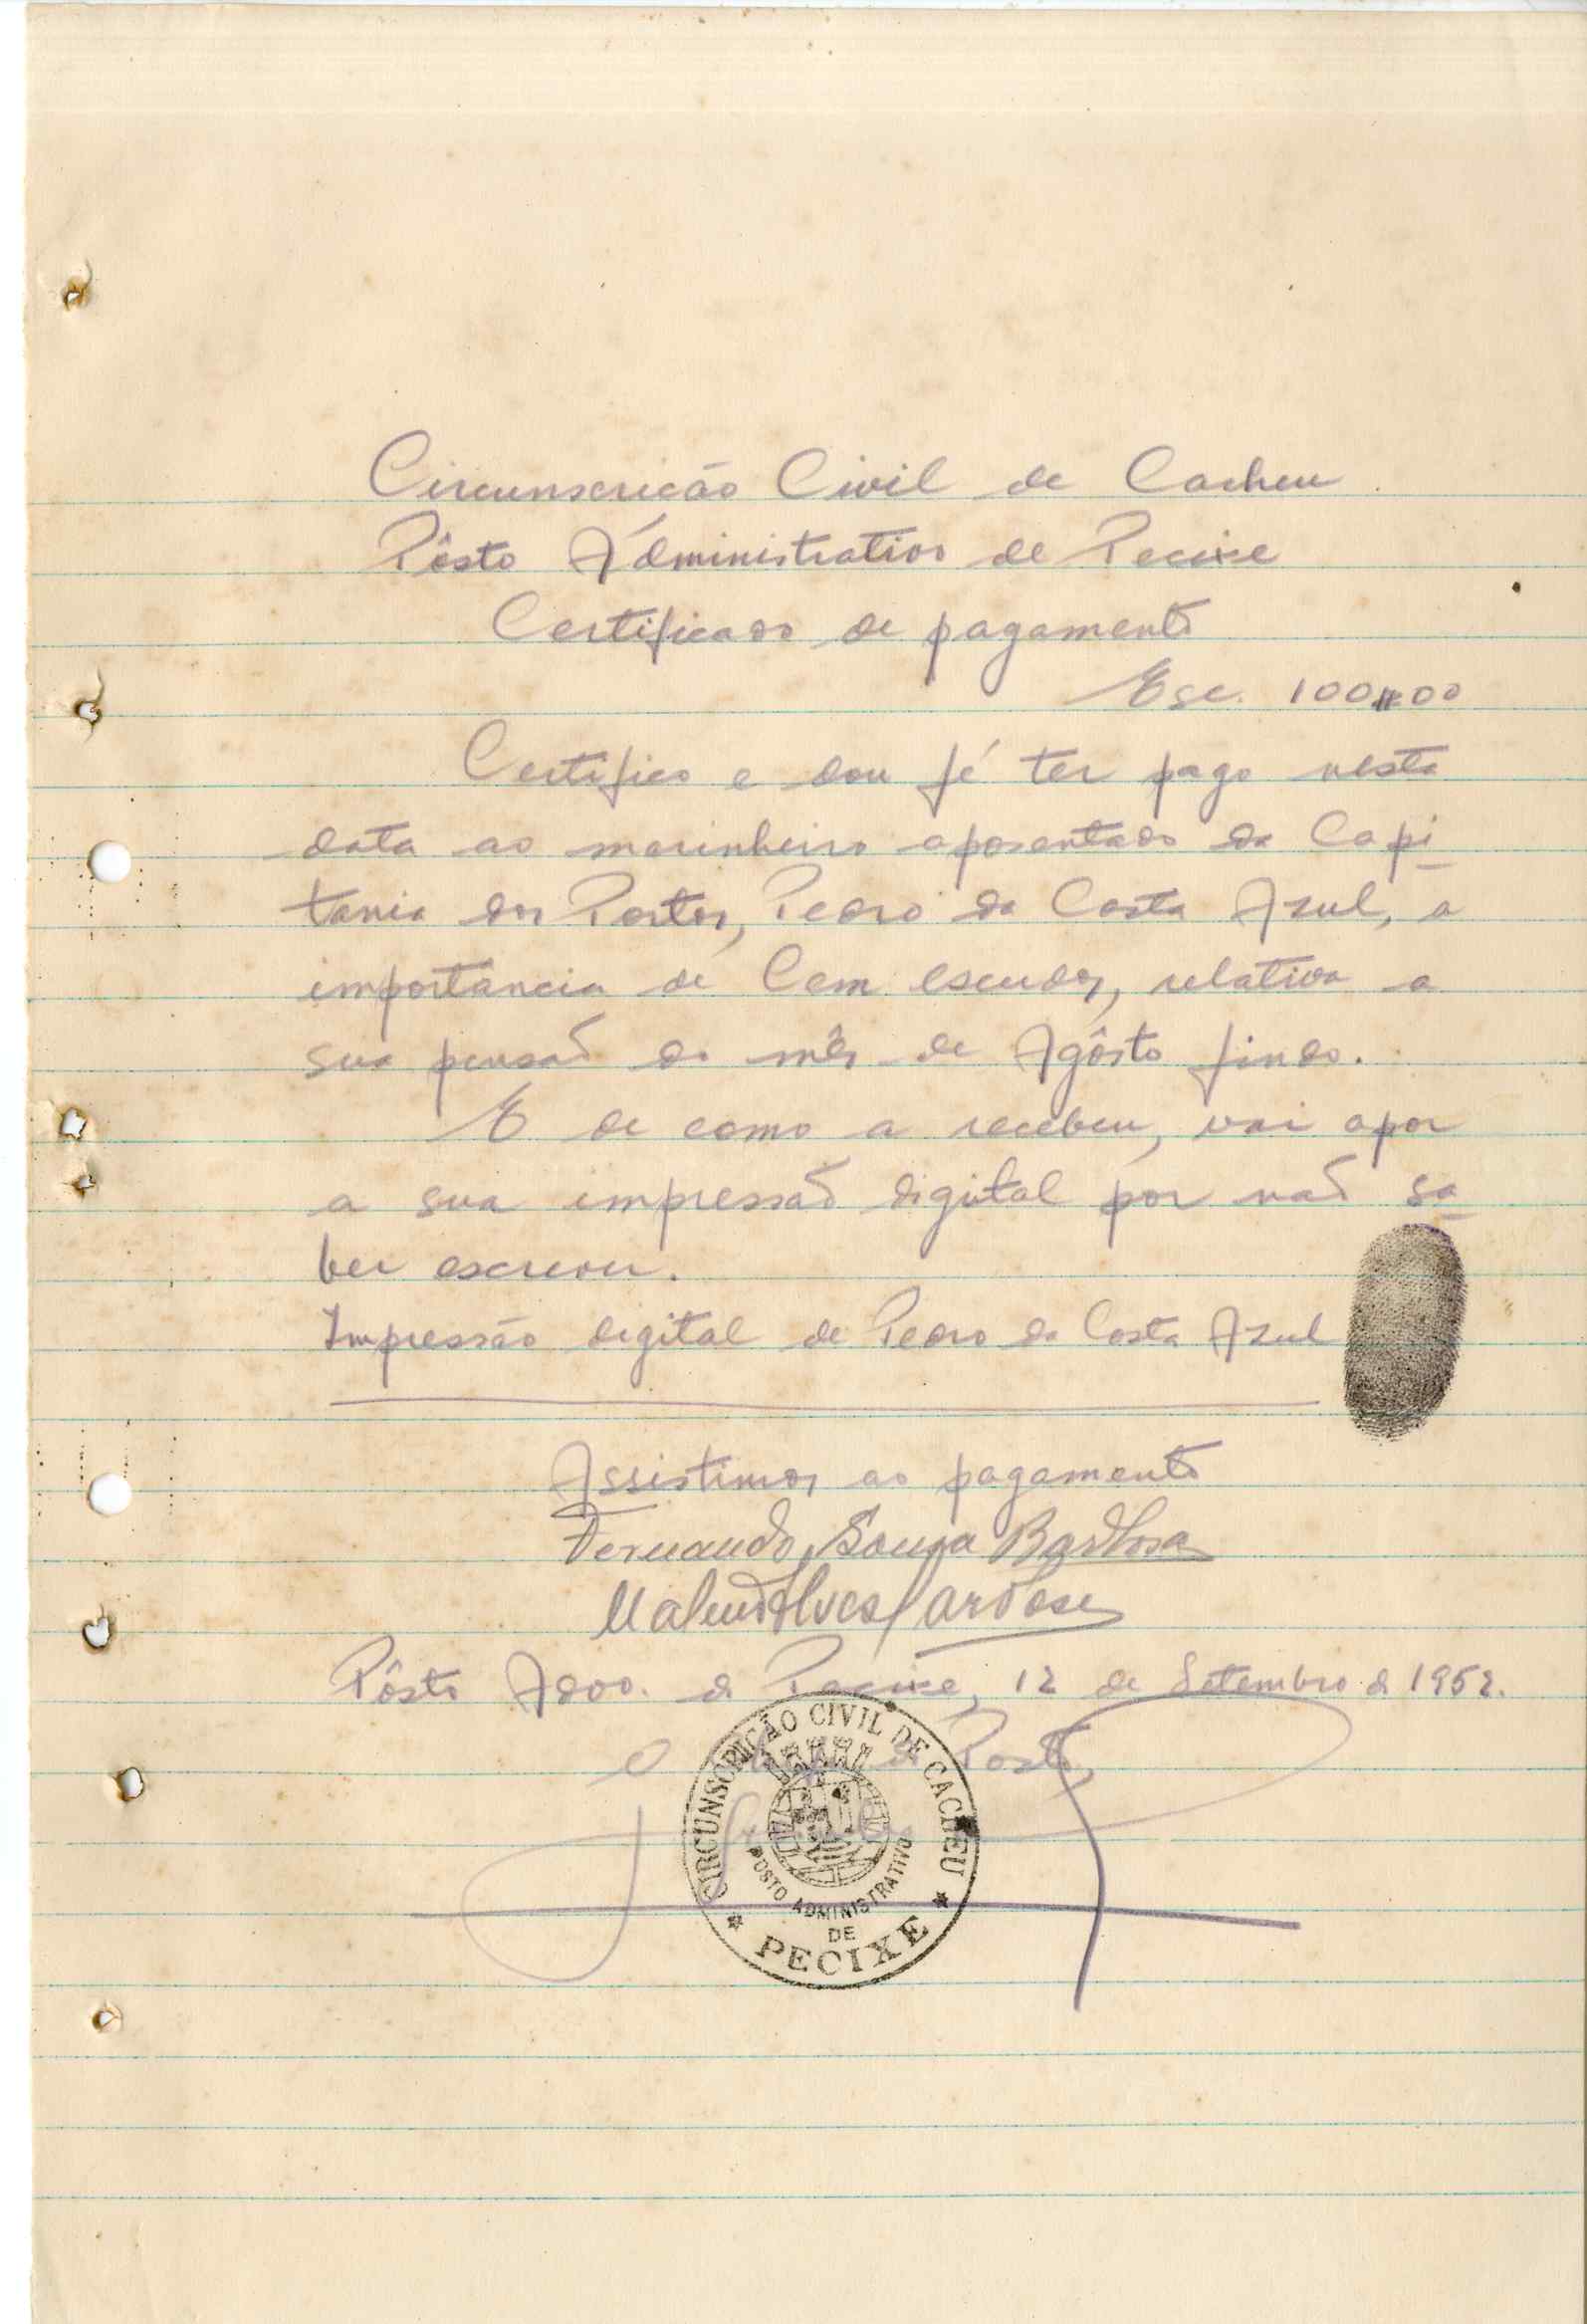 Circunscrição Civil de Cacheu
Pôsto Administrativo de Pecixe
Certificado de pagamento
Esc. 100$00
Certifico e dou fé ter pago nesta
data ao marinheiro aposentado da Capi
tania dos Portos, Pedro da Costa Azul, a
importancia de Cem escudos, relativa a
sua pensão do mês de Agôsto findo.
E de como a recebeu, vai apor
a sua impressão digital por não sa
ber escrever.
Impressão digital de Pedro da Costa Azul
Assistimos ao pagamento
Fernando Sousa Barbosa
Alves Cardoso
Pôsto Admo. de Pecixe, 12 de Setembro de 1952.
O de Posto,
CIRCUNSCRIÇÃO CIVIL DE CACHEU
POSTO ADMINISTRATIVO
DE
PECIXE